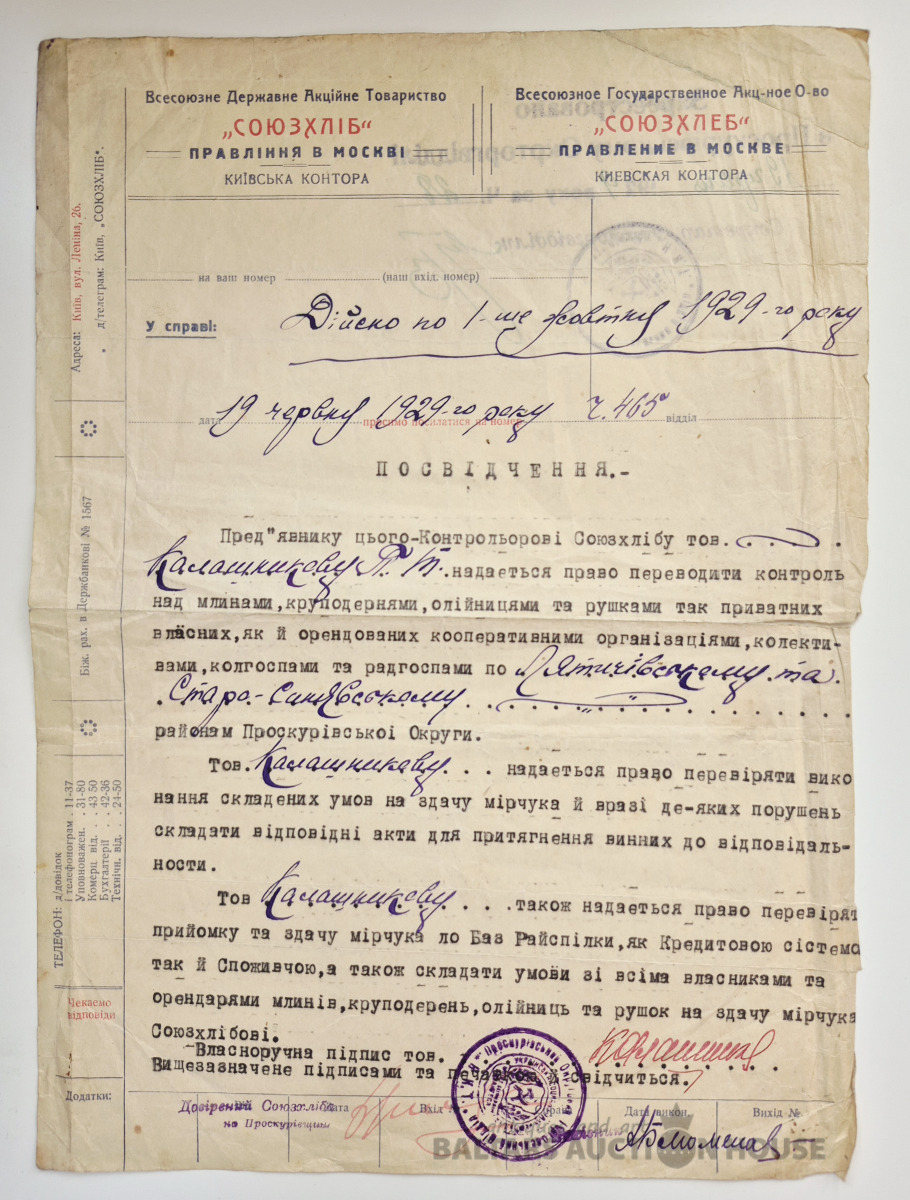 Всесоюзне Державне Акційне Товариство
„СОЮЗХЛІБ“
ПРАВЛІННЯ В МОСКВІ
КИЇВСЬКА КОНТОРА
Всесоюзное Государственное Акц-ное О-во
„СОЮЗХЛЕБ“
ПРАВЛЕНИЕ В МОСКВЕ
КИЕВСКАЯ КОНТОРА
Адреса: Київ, вул. Леніна, 26.
д/телеграм: Київ, „СОЮЗХЛІБ“.
на ваш номер (наш вхід. номер)
У справі: Дійсно по 1-ше жовтня 1929-го року
дата 19 червня 1929-го року просимо посилатися на номер ч. 465 відділ
ПОСВІДЧЕННЯ.-
Пред"явнику цього-Контрольорові Союзхлібу тов.
Калашникову П. Т. надається право переводити контроль
над млинами,круподернями,олійницями та рушками так приватних
власних,як й орендованих кооперативними організаціями,колекти-
вами,колгоспами та радгоспами по Лятичівському та
Старо-Синявському
районам Проскурівськоі Округи.
Тов. Калашникову . . . надається право перевіряти вико
нання складених умов на здачу мірчука й вразі де-яких порушень
складати відповідні акти для притягнення винних до відповідаль-
ности.
Тов Калашникову . . . .також надається право перевірят
прийомку та здачу мірчука ло Баз Райспілки,як Кредитовою сістемо
так й Споживчою,а також складати умови зі всіма власниками та
орендарями млинів,круподерень,олійниць та рушок на здачу мірчука
Союзхлібові.
Власноручна підпис тов.
Вищезазначене підписами та печаткою свідчиться.
Біж. рах. в Держбанкові № 1567
ТЕЛЕФОН: д/довідок
і телефонограм . 11-37
Уповноважен. . 31-80
Комерц від. . . 43-50
Бухгалтерії . . 42-36
Технічн. від. . . 24-50
Чекаємо
відповіди
Додатки:
Довірений Союзхліба
на Проскурівщині
Дата
Вхід
Дата викон.
Вихід №
BALTERS AUCTION HOUSE